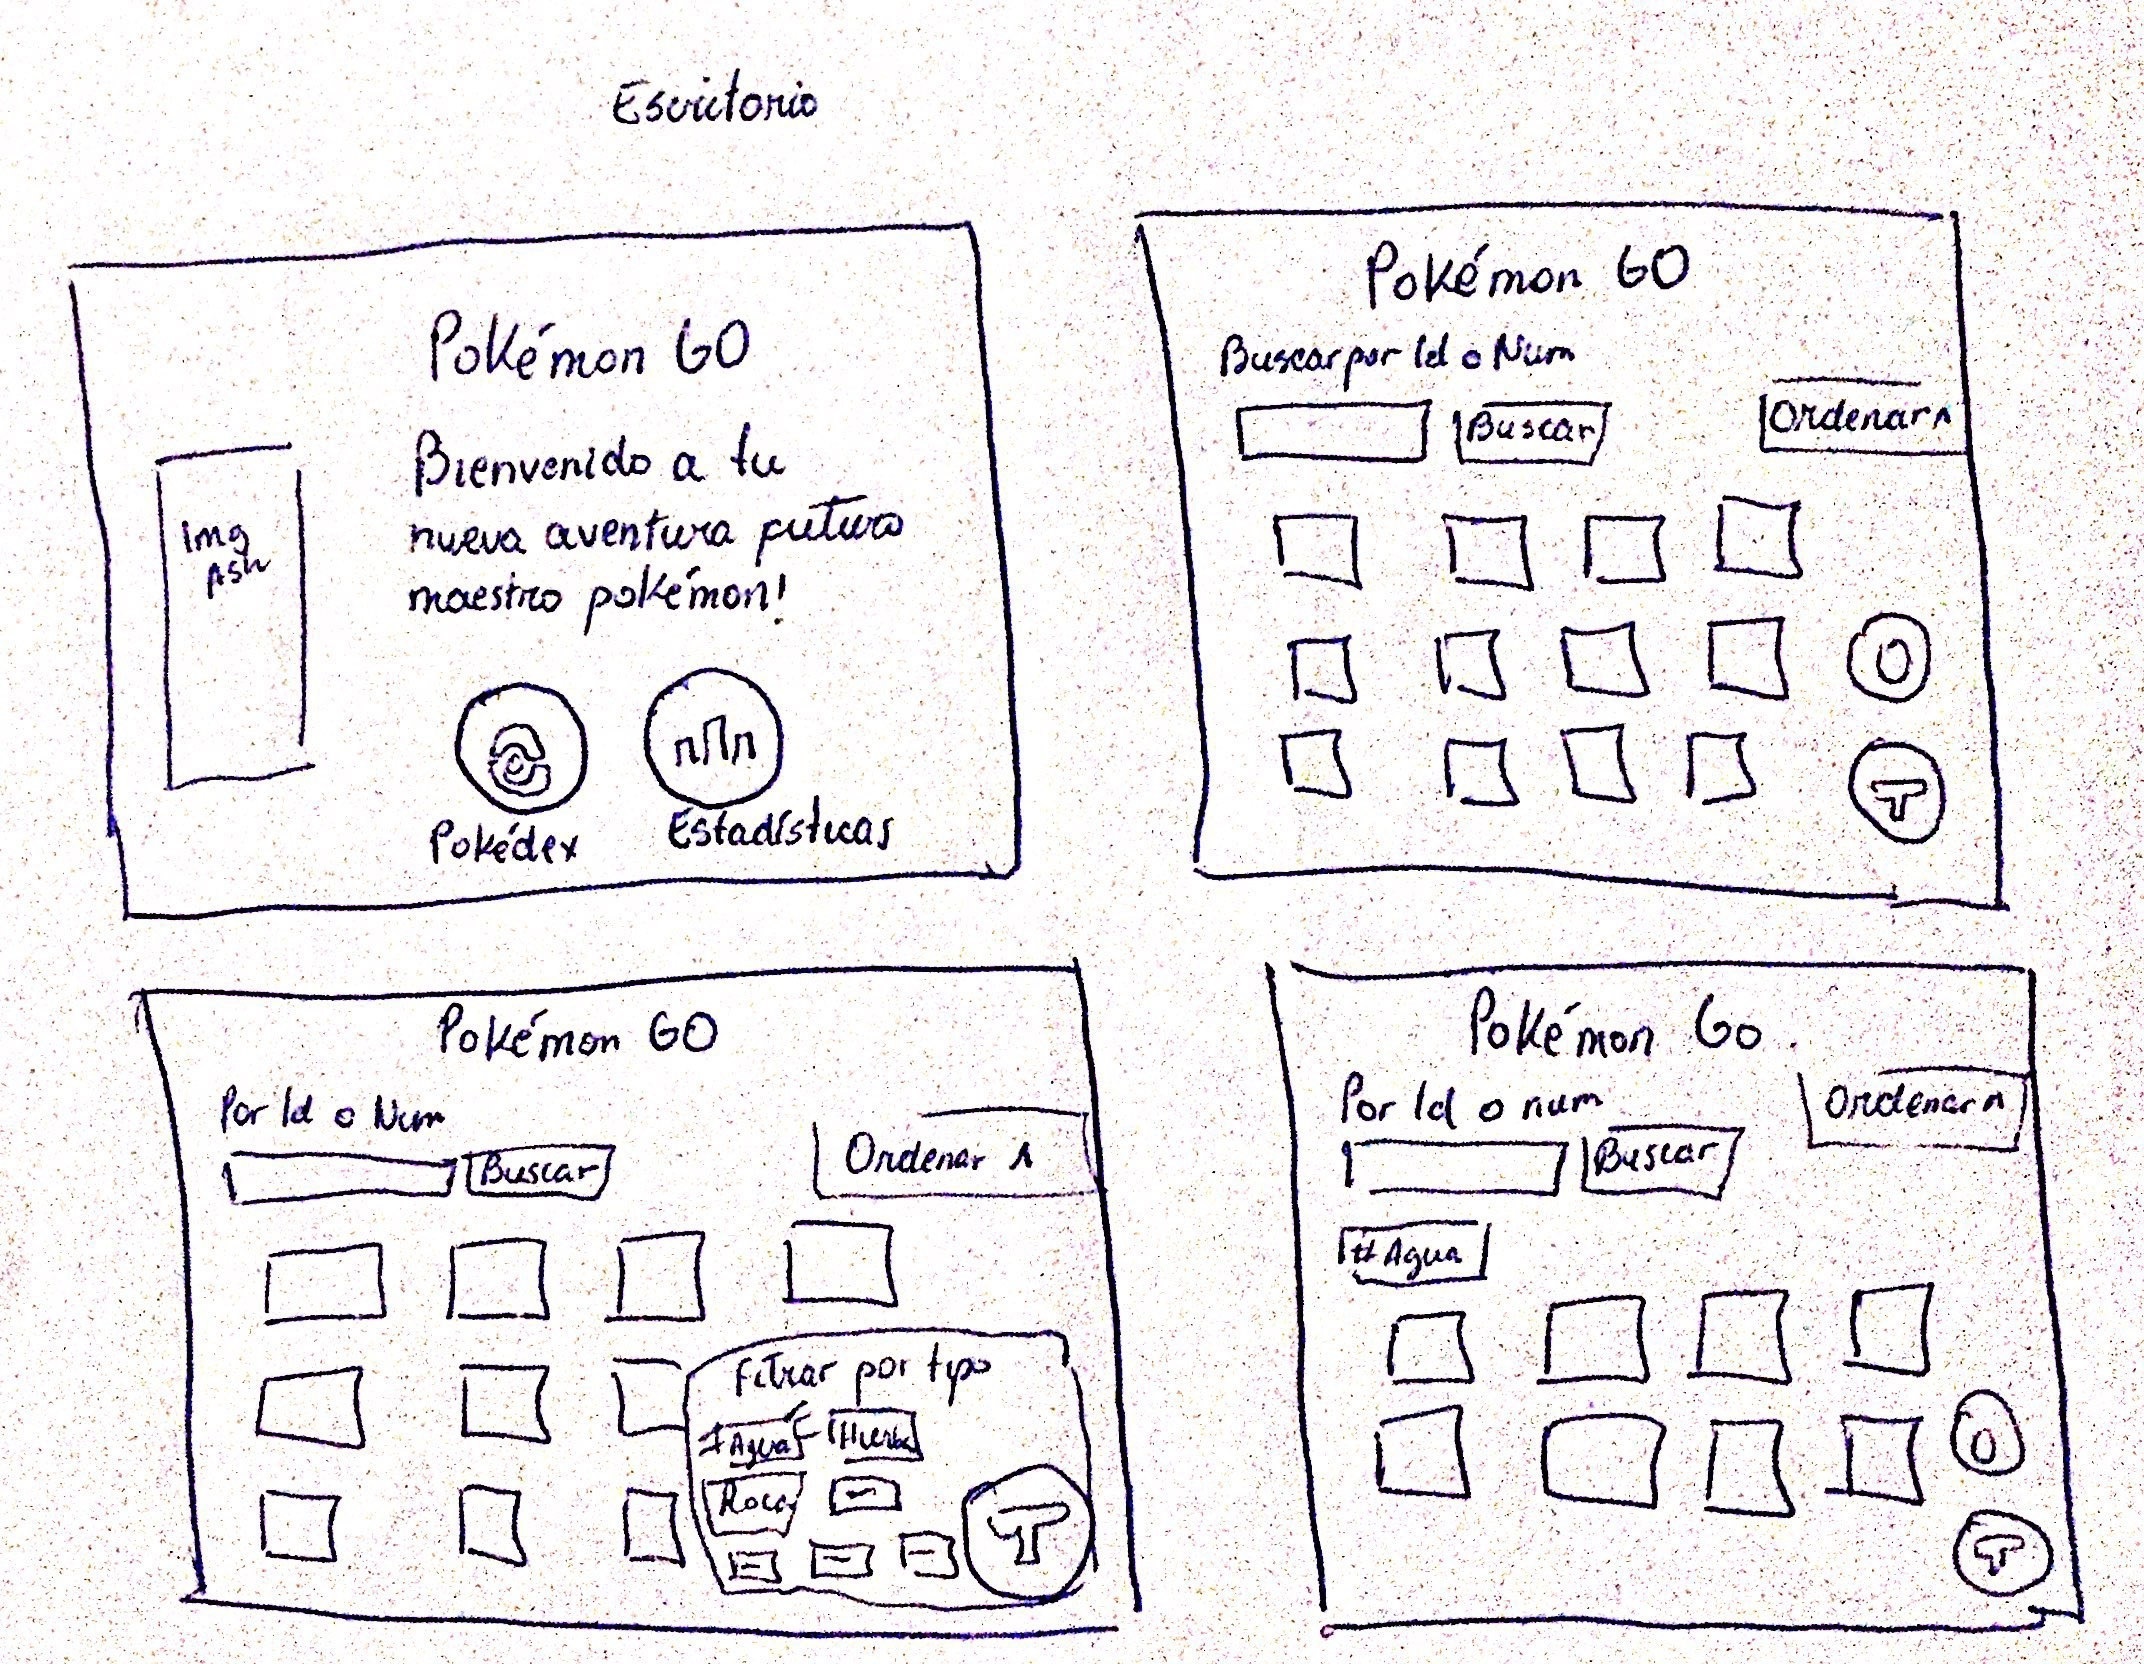 Escritorio
Pokémon GO
Bienvenido a tu
nueva aventura futuro
maestro pokémon!
Img
Ash
Pokédex
Estadísticas
Pokémon GO
Buscar por Id o Num
Buscar
Ordenar ^
Pokémon GO
Por Id o Num
Buscar
Ordenar ^
Filtrar por tipo
#Agua
Roca
Pokémon Go
Por Id o num
Ordenar ^
Buscar
#Agua